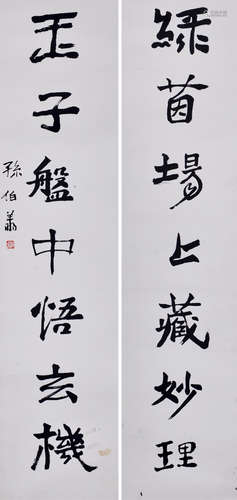 綠茵場上藏妙理
玉子盤中悟玄機
孫伯蕭